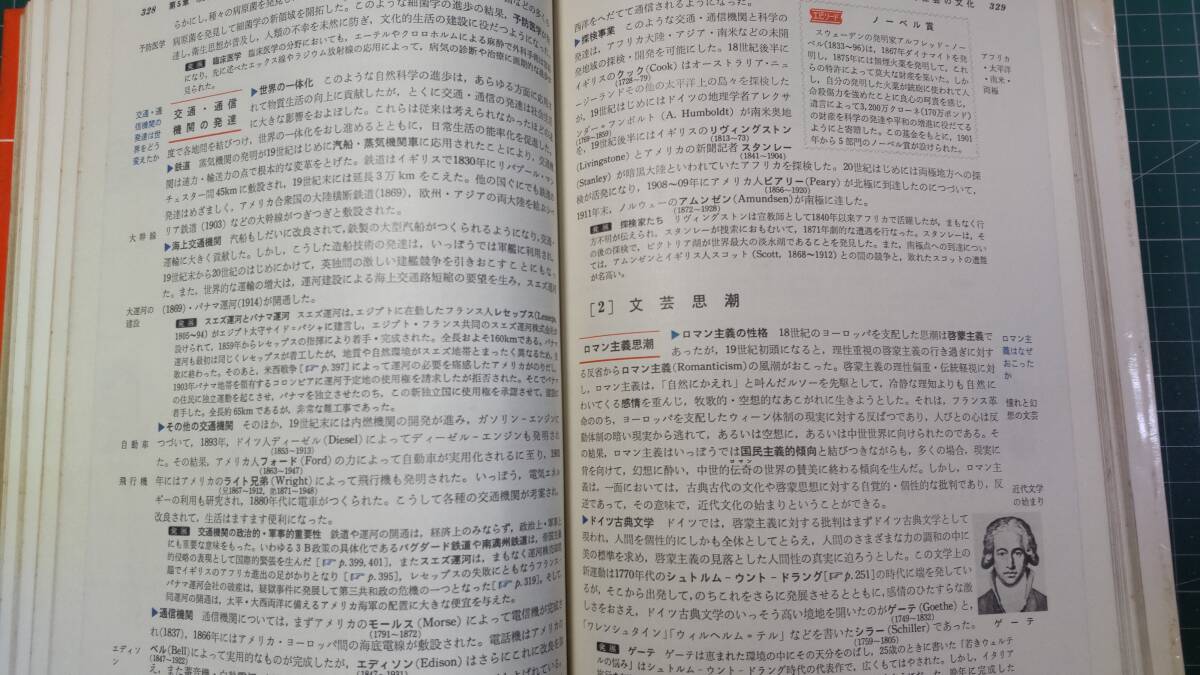 328 第5章
らかにし,種々の病原菌を発見し
予防医学
病原菌を発見して細菌学の新領域を開拓した。このような細菌学の進歩の結果,予防医学が
達し,衛生思想が普及し,人類の不幸を未然に防ぎ,文化的生活の建設に役だつようになった。
発展 臨床医学 臨床医学の分野においても,エーテルやクロロホルムによる麻酔で外科手術は
になり,先に述べたエックス線やラジウム放射線の応用によって,病気の診断や治療に画期的な進歩が
見られた。
交通・通信機関の発達は世界をどう変えたか
交通・通信機関の発達
▶世界の一体化 このような自然科学の進歩は,あらゆる方面に応用さ
れて物質生活の向上に貢献したが,とくに交通・通信の発達は社会生活
に大きな影響をおよぼした。これらは従来は考えられなかったほどの速
度で各地間を結びつけ,世界の一体化をおし進めるとともに,日常生活の能率化を促進した。
▶鉄道 蒸気機関の発明が19世紀はじめに汽船・蒸気機関車に応用されたことにより,交通機
関は速力・輸送力の点で根本的な変革をとげた。鉄道はイギリスで1830年にリバプール・マン
チェスター間45kmに敷設され,19世紀末には延長3万kmをこえた。他の国ぐにでも鉄道の
発達はめざましく,アメリカ合衆国の大陸横断鉄道(1869),欧州・アジアの両大陸を結ぶシベ
大幹線
リア鉄道(1903)などの大幹線がつぎつぎと敷設された。
▶海上交通機関 汽船もしだいに改良されて,鉄製の大型汽船がつくられるようになり,交通・
運輸に大きく貢献した。しかし,こうした造船技術の発達は,いっぽうでは軍艦に利用され,
19世紀末から20世紀のはじめにかけて,英独間の激しい建艦競争を引きおこすことにもなっ
た。また,世界的な運輸の増大は,運河建設による海上交通路短縮の要望を生み,スエズ運河
大運河の建設
(1869)・パナマ運河(1914)が開通した。
発展 スエズ運河とパナマ運河 スエズ運河は,エジプトに在勤したフランス人レセップス(Lesseps,
1805〜94)がエジプト太守サイド=パシャに建言し,エジプト・フランス共同のスエズ運河株式会社が
設けられて,1859年からレセップスの指揮により着手・完成された。全長およそ160kmである。パナマ
運河も最初は同じくレセップスが着工したが,地質や自然環境がスエズ地帯とまったく異なるため,失
敗に終わった。そのあと,米西戦争[☞p.397]によって運河の必要を痛感したアメリカがのりだし,
1903年パナマ地帯を領有するコロンビアに運河予定地の使用権を請求したが拒否された。そこでパナマ
の住民に独立運動を起こさせ,パナマを独立させたのち,この新独立国に使用権を承認させて,運河に
着手した。全長約65kmであるが,非常な難工事であった。
▶その他の交通機関 そのほか,19世紀末には内燃機関の開発が進み,ガソリン=エンジンに
自動車
つづいて,1893年,ドイツ人ディーゼル(Diesel)によってディーゼル=エンジンも発明され
(1858〜1913)
た。その結果,アメリカ人フォード(Ford)の力によって自動車が実用化されるに至り,1903
(1863〜1947)
飛行機
年にはアメリカのライト兄弟(Wright)によって飛行機も発明された。いっぽう,電気エネル
(兄1867〜1912, 弟1871〜1948)
ギーの利用も研究され,1880年代に電車がつくられた。こうして各種の交通機関が考案され,
改良されて,生活はますます便利になった。
発展 交通機関の政治的・軍事的重要性 鉄道や運河の開通は,経済上のみならず,政治上・軍事上
にも重要な意味をもった。いわゆる3B政策の具体化であるバグダード鉄道や南満州鉄道は,帝国主義
的侵略の表現として国際的緊張を生んだ[☞p.399,401],またスエズ運河は,まもなく運河株の買
でイギリスのアフリカ進出の足がかりとなり[☞p.395],レセップスの失敗にともなうフランスの
パナマ運河会社の破産は,疑獄事件に発展して第三共和政の危機の一つとなった[☞p.319]。そして
同運河の開通は,太平・大西両洋に備えるアメリカ海軍の配置に大きな便宜を与えた。
▶通信機関 通信機関については,まずアメリカのモールス(Morse)によって電信機が完成さ
(1791〜1872)
れ(1837),1866年にはアメリカ・ヨーロッパ間の海底電線が敷設された。電話機はアメリカの
エディソン
ベル(Bell)によって実用的なものが完成したが,エディソン(Edison)はさらにこれに改良を
(1847〜1922)
(1847〜1931)
の文化 329
西洋をへだてて通信されるようになった。
▶探検事業 このような交通・通信機関と科学の
発達は,アフリカ大陸・アジア・南米などの未開
発地域の探検・開発を可能にした。18世紀後半に
イギリスのクック(Cook)はオーストラリア・ニュ
(1728〜79)
ージーランドその他の太平洋上の島々を探検した
が,19世紀はじめにはドイツの地理学者アレクサ
ンダー=フンボルト(A. Humboldt)が南米奥地
(1769〜1859)
を,19世紀後半にはイギリスのリヴィングストン
(1813〜73)
(Livingstone)とアメリカの新聞記者スタンレー
(1841〜1904)
(Stanley)が暗黒大陸といわれていたアフリカを探検した。20世紀はじめには両極地方への探
検が活発になり,1908〜09年にアメリカ人ピアリー(Peary)が北極に到達したのについで,
(1856〜1920)
1911年末,ノルウェーのアムンゼン(Amundsen)が南極に達した。
(1872〜1928)
エピソード
ノーベル賞
スウェーデンの発明家アルフレッド=ノー
ベル(1833〜96)は,1867年ダイナマイトを発
明し,1875年には無煙火薬を発明して,これ
らの特許によって莫大な財産を築いた。しか
し,自分の発明した火薬が戦庭に使われて人
命殺傷力を強めたことに良心の呵責を感じ,
遺言によって3,200万クローネ(170万ポンド)
の財産を科学の発達や平和の増進に役だてる
ようにと寄贈した。この基金をもとに,1901
年から5部門のノーベル賞が設けられた。
アフリカ・太平洋・南米・両極
発展 探検家たち リヴィングストンは宣教師として1840年以来アフリカで活躍したが,まもなく行
方不明が伝えられ,スタンレーが捜索におもむいて,1871年劇的な遭遇を行なった。スタンレーは,そ
の後の探検で,ビクトリア湖が世界最大の淡水湖であることを発見した。また,南極点への到達につい
ては,アムンゼンとイギリス人スコット(Scott, 1868〜1912)との間の競争と,敗れたスコットの遭難
が名高い。
[2] 文芸思潮
ロマン主義思潮
▶ロマン主義の性格 18世紀のヨーロッパを支配した思潮は啓蒙主義で
あったが,19世紀初頭になると,理性重視の啓蒙主義の行き過ぎに対す
る反省からロマン主義(Romanticism)の風潮がおこった。啓蒙主義の理性偏重・伝統軽視に対
し,ロマン主義は,「自然にかえれ」と叫んだルソーを先駆として,冷静な理知よりも自然に
わいてくる感情を重んじ,牧歌的・空想的なあこがれに生きようとした。それは,フランス革
命ののち,ヨーロッパを支配したウィーン体制の現実に対する反ぱつであり,人びとの心は反
動体制の暗い現実から逃れて,あるいは空想に,あるいは中世世界に向けられたのである。そ
の結果,ロマン主義はいっぽうでは国民主義的傾向と結びつきながらも,多くの場合,現実に
背を向けて,幻想に酔い,中世的伝奇の世界の賛美に終わる傾向を生んだ。しかし,ロマン主
義は,一面においては,古典古代の文化や啓蒙思想に対する自覚的・個性的な批判であり,反
逆であって,その意味で,近代文化の始まりということができる。
ロマン主義はなぜおこったか
憧れと幻想の文芸
近代文学の始まり
▶ドイツ古典文学 ドイツでは,啓蒙主義に対する批判はまずドイツ古典文学として
現われ,人間を個性的にしかも全体としてとらえ,人間のさまざまな力の調和の中に
美の標準を求め,啓蒙主義の見落とした人間性の真実に迫ろうとした。この文学上の
新運動は1770年代のシュトルム=ウント=ドラング[☞p.251]の時代に端を発してい
るが,そこから出発して,のちこれをさらに発展させるとともに,感情のひたすらな激
しさをおさえ,ドイツ古典文学のいっそう高い境地を開いたのがゲーテ(Goethe)と,
(1749〜1832)
「ワレンシュタイン」「ウィルヘルム=テル」などを書いたシラー(Schiller)であった。
(1759〜1805)
ゲーテ
発展 ゲーテ ゲーテは恵まれた環境の中にその天分をのばし,25歳のときに書いた「若きウェルテ
ルの悩み」はシュトルム=ウント=ドラング時代の代表作で,広くもてはやされた。しかし,イタリア